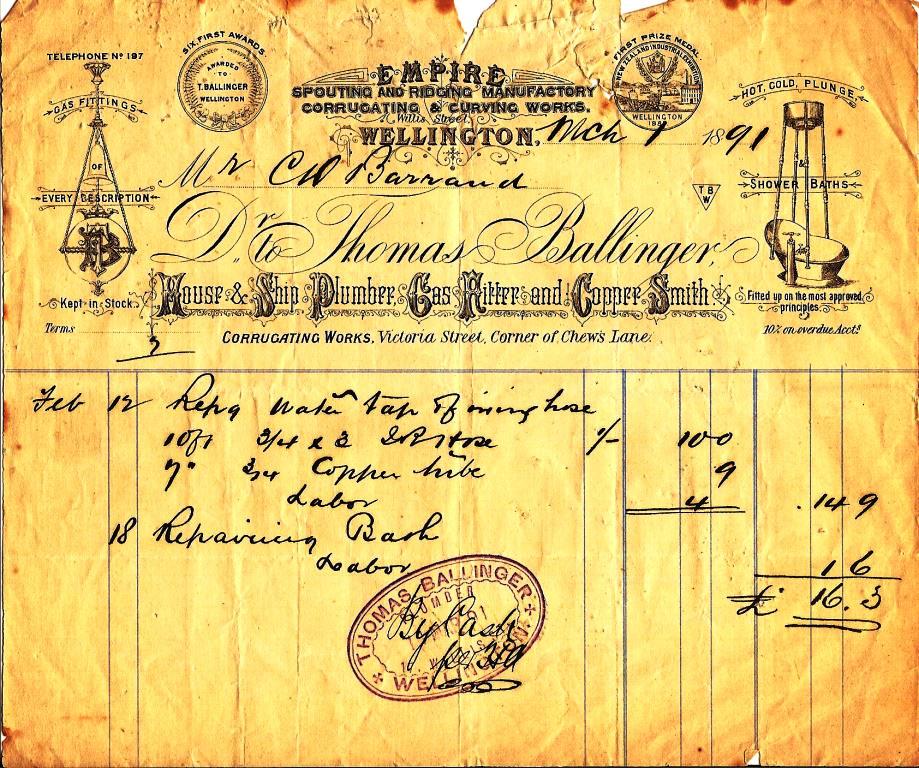 TELEPHONE No 197
GAS FITTINGS
OF
EVERY DESCRIPTION
TB
Kept in Stock.
Terms
SIX FIRST AWARDS
AWARDED
TO
T. BALLINGER
WELLINGTON
EMPIRE
SPOUTING AND RIDGING MANUFACTORY
CORRUGATING & CURVING WORKS.
Willis Street,
WELLINGTON, Mch 1 1891
FIRST PRIZE MEDAL
NEW ZEALAND INDUSTRIAL EXHIBITION
WELLINGTON
HOT, COLD, PLUNGE
&
SHOWER BATHS
Fitted up on the most approved
principles.
10% on overdue Accts
Mr C W Barraud
T B
W
Dr. to Thomas Ballinger,
House & Ship Plumber, Gas Fitter and Copper Smith
CORRUGATING WORKS, Victoria Street, Corner of Chew's Lane.
Feb 12 Repg water tap & hose
10ft 3/4 x 3 Hose 1/- 10 0
9" 3/4 Copper tube 9
Labor 4 . 14 9
18 Repairing Bath
Labor 1 6
£ 16. 3
THOMAS BALLINGER
PLUMBER
WELLINGTON
By Cash